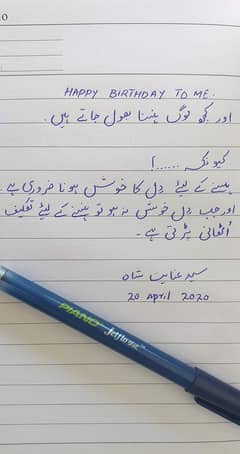 HAPPY BIRTHDAY TO ME.
اور کچھ لوگ ہنسنا بھول جاتے ہیں۔
کیونکہ ......!
ہنسنے کے لیئے دل کا خوش ہونا ضروری ہے۔
اور جب دل خوش نہ ہو تو ہنسنے کے لیئے تکلیف
اُٹھانی پڑتی ہے۔
سید عنایت شاہ
20 April 2020
PIANO Jetliner